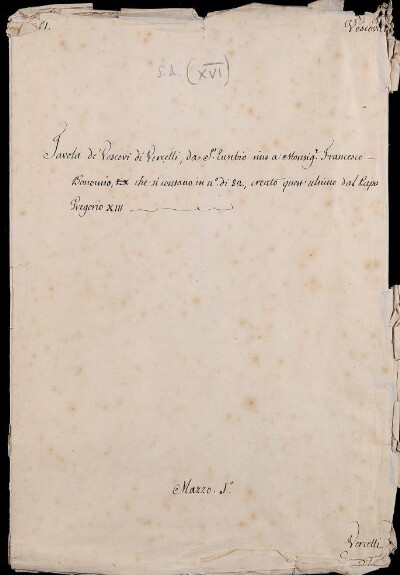 1.
Vescova
s. d. (XVI)
Tavola de' Vescovi di Vercelli, da S.n Eusebio sino a Monsig.r Francesco
Bonomio, che si contano in n.o di 82, creato quest'ultimo dal Papa
Gregorio XIII
Mazzo 1.o
Vercelli